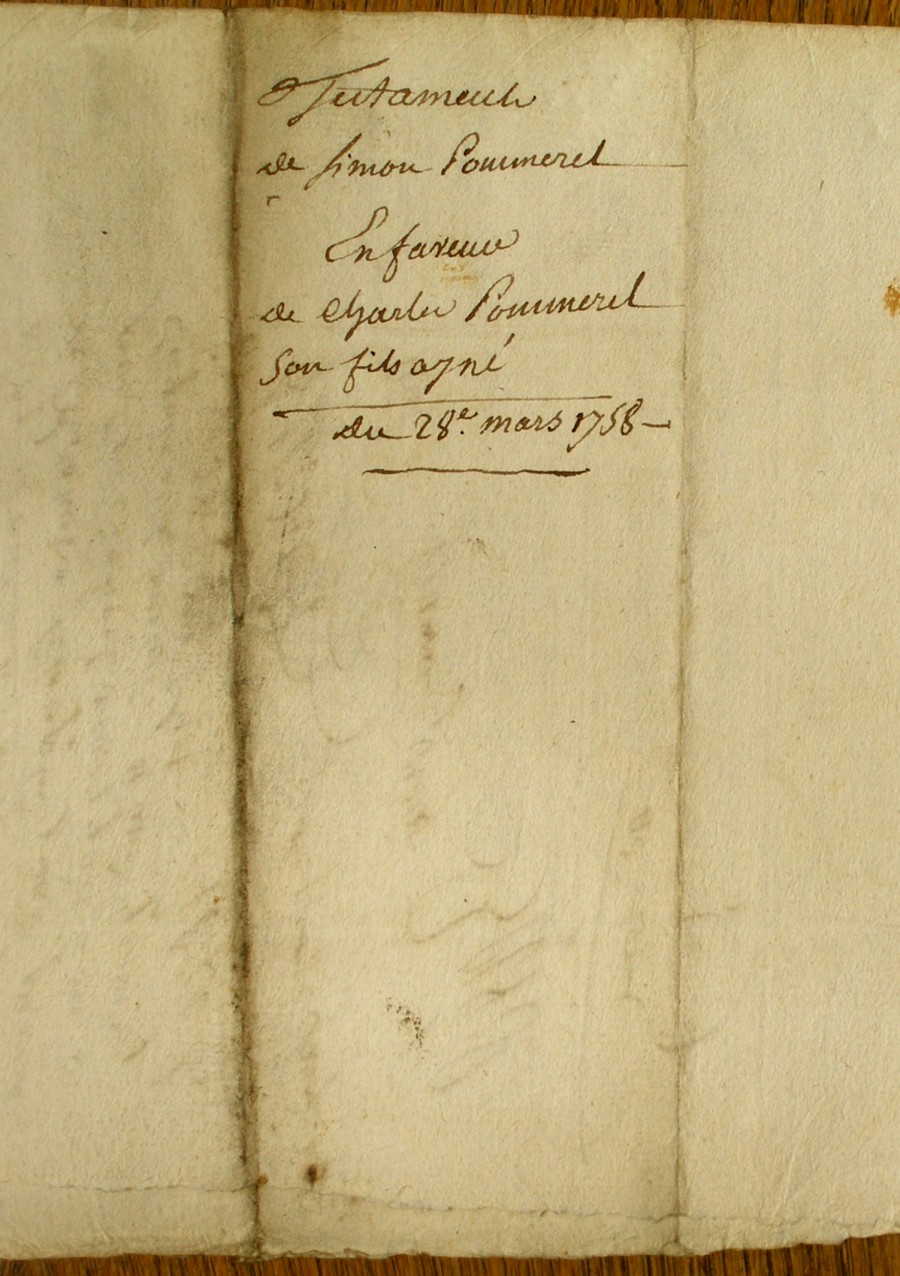 Testament
de Simon Pommerel
En faveur
de Charles Pommerel
Son fils ayné
du 28e. mars 1758